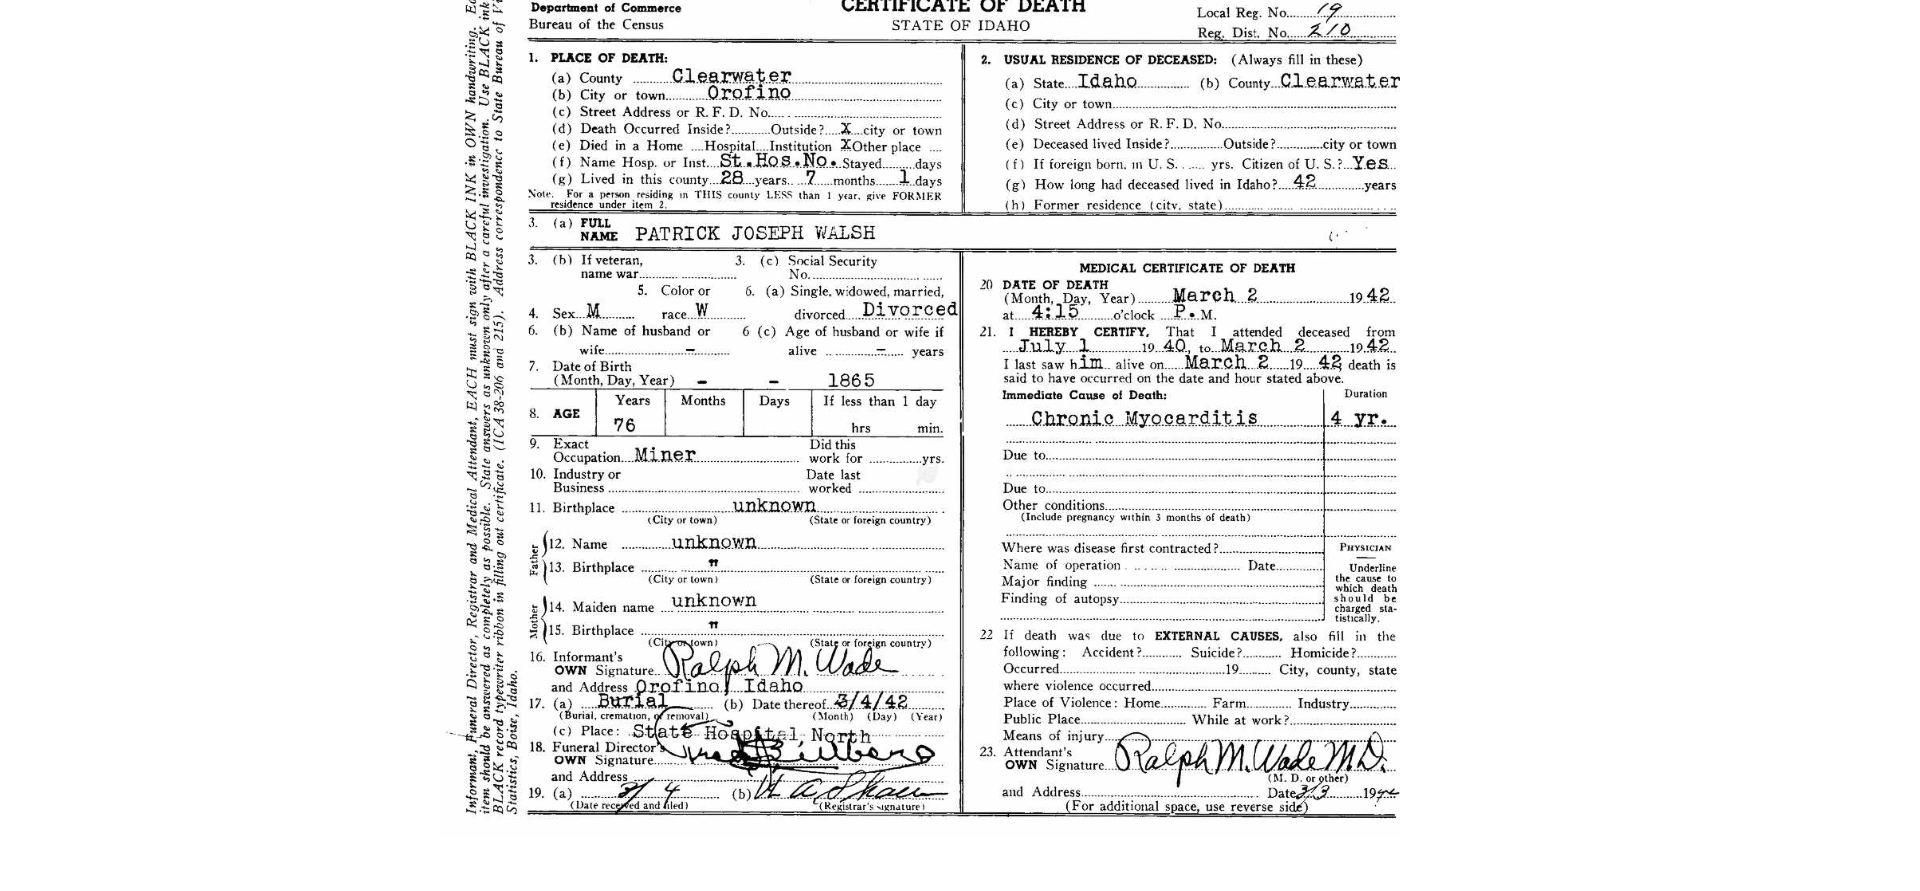 Department of Commerce
Bureau of the Census
CERTIFICATE OF DEATH
STATE OF IDAHO
Local Reg. No. 19
Reg. Dist. No. 210
1. PLACE OF DEATH:
(a) County Clearwater
(b) City or town Orofino
(c) Street Address or R. F. D. No.
(d) Death Occurred Inside? Outside? X city or town
(e) Died in a Home Hospital Institution X Other place
(f) Name Hosp. or Inst. St.Hos.No. Stayed days
(g) Lived in this county 28 years 7 months 1 days
Note. For a person residing in THIS county LESS than 1 year, give FORMER
residence under item 2.
2. USUAL RESIDENCE OF DECEASED: (Always fill in these)
(a) State Idaho (b) County Clearwater
(c) City or town
(d) Street Address or R. F. D. No.
(e) Deceased lived Inside? Outside? city or town
(f) If foreign born, in U. S. yrs. Citizen of U. S.? Yes
(g) How long had deceased lived in Idaho? 42 years
(h) Former residence (city, state)
3. (a) FULL
NAME PATRICK JOSEPH WALSH
3. (b) If veteran, 3. (c) Social Security
name war No.
5. Color or 6. (a) Single, widowed, married,
4. Sex M race W divorced Divorced
6. (b) Name of husband or 6 (c) Age of husband or wife if
wife - alive - years
7. Date of Birth
(Month, Day, Year) - - 1865
8. AGE Years Months Days If less than 1 day
76 hrs min.
9. Exact Did this
Occupation Miner work for yrs.
10. Industry or Date last
Business worked
11. Birthplace unknown
(City or town) (State or foreign country)
Father
12. Name unknown
13. Birthplace "
(City or town) (State or foreign country)
Mother
14. Maiden name unknown
15. Birthplace "
(City or town) (State or foreign country)
16. Informant's
OWN Signature Ralph M. Wade
and Address Orofino, Idaho
17. (a) Burial (b) Date thereof 3/4/42
(Burial, cremation, or removal) (Month) (Day) (Year)
(c) Place: State Hospital North
18. Funeral Director's
OWN Signature
and Address
19. (a) 3/4 (b)
(Date received and filed) (Registrar's signature)
MEDICAL CERTIFICATE OF DEATH
20 DATE OF DEATH
(Month, Day, Year) March 2 1942
at 4:15 o'clock P. M.
21. I HEREBY CERTIFY, That I attended deceased from
July 1 1940, to March 2 1942
I last saw him alive on March 2 19 42 death is
said to have occurred on the date and hour stated above.
Immediate Cause of Death: Duration
Chronic Myocarditis 4 yr.
Due to
Due to
Other conditions
(Include pregnancy within 3 months of death)
Where was disease first contracted?
Name of operation Date
Major finding
Finding of autopsy
PHYSICIAN
Underline
the cause to
which death
should be
charged sta-
tistically.
22 If death was due to EXTERNAL CAUSES, also fill in the
following: Accident? Suicide? Homicide?
Occurred 19 City, county, state
where violence occurred
Place of Violence: Home Farm Industry
Public Place While at work?
Means of injury
23. Attendant's
OWN Signature Ralph M. Wade M.D.
(M. D. or other)
and Address Date 3/3 1942
(For additional space, use reverse side)
Informant, Funeral Director, Registrar and Medical Attendant, EACH must sign with BLACK INK in OWN handwriting.
item should be answered as completely as possible. State answers as unknown only after a careful investigation. Use BLACK ink
BLACK record typewriter ribbon in filling out certificate. (ICA 38-206 and 215). Address correspondence to State Bureau of
Statistics, Boise, Idaho.